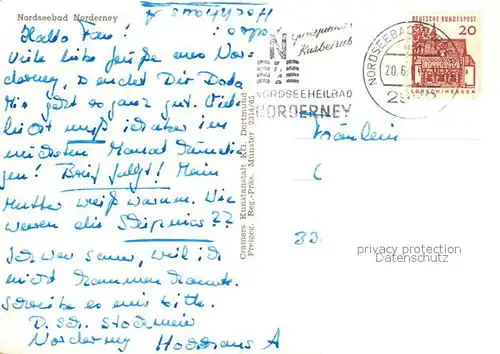 Nordseebad Norderney
Hallo
Viele liebe Grüße aus Nor-
derney, sendet Dir
Mir geht es ganz gut. Viel-
leicht muß ich aber im
nächsten Monat kündi-
gen! Brief folgt! Mein
Mutter weiß warum. Wie
waren die
Ich war sauer, weil ich
nicht kommen konnte.
Schreibe es mir bitte.
Norderney Hochhaus A
Cramers Kunstanstalt KG. Dortmund
Freigeg. Reg.-Präs. Münster
ganzjähriger
Kurbetrieb
NORDSEEHEILBAD
NORDERNEY
NORDSEEBAD
20.6.
DEUTSCHE BUNDESPOST
20
LORSCH/HESSEN
Fräulein
privacy protection
Datenschutz